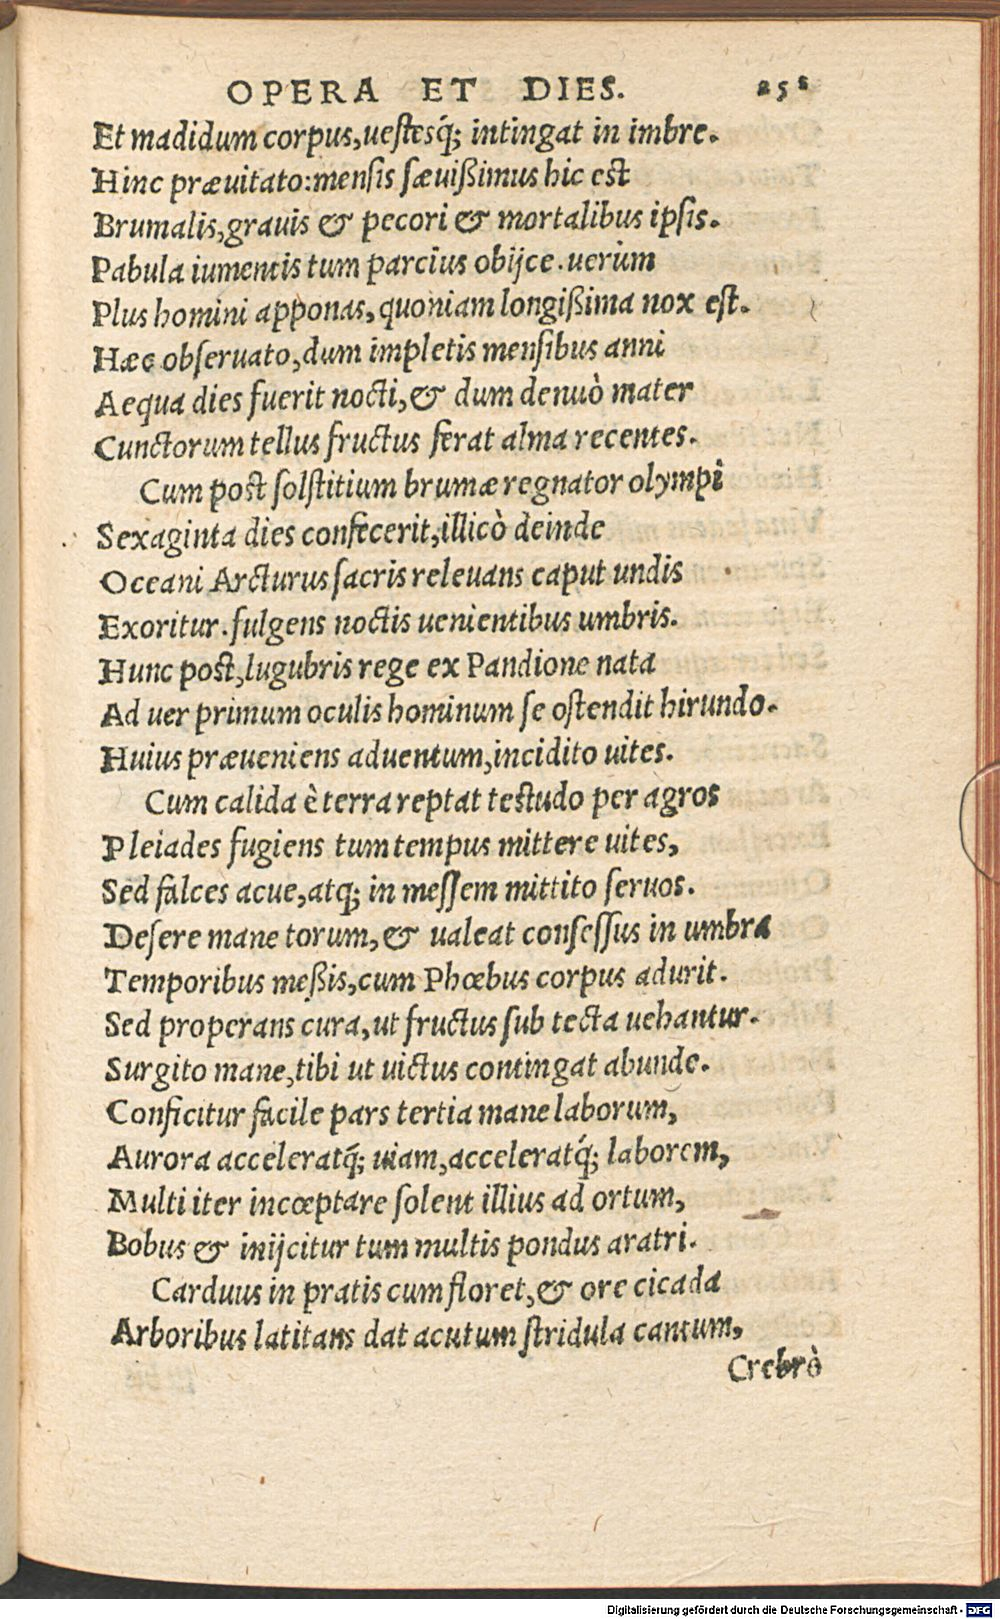 OPERA ET DIES. 255
Et madidum corpus, uestesq́; intingat in imbre.
Hinc præuitato: mensis sæuißimus hic est
Brumalis, grauis & pecori & mortalibus ipsis.
Pabula iumentis tum parcius obijce. uerùm
Plus homini apponas, quoniam longißima nox est.
Hæc obseruato, dum impletis mensibus anni
Aequa dies fuerit nocti, & dum denuò mater
Cunctorum tellus fructus ferat alma recentes.
Cum post solstitium brumæ regnator olympi
Sexaginta dies confecerit, illicò deinde
Oceani Arcturus sacris releuans caput undis
Exoritur. fulgens noctis uenientibus umbris.
Hunc post, lugubris rege ex Pandione nata
Ad uer primum oculis hominum se ostendit hirundo.
Huius præueniens aduentum, incidito uites.
Cum calida è terra reptat testudo per agros
Pleiades fugiens tum tempus mittere uites,
Sed falces acue, atq; in messem mittito seruos.
Desere mane torum, & ualeat consessus in umbra
Temporibus meßis, cum Phœbus corpus adurit.
Sed properans cura, ut fructus sub tecta uehantur.
Surgito mane, tibi ut uictus contingat abunde.
Conficitur facile pars tertia mane laborum,
Aurora acceleratq́; uiam, acceleratq́; laborem,
Multi iter incœptare solent illius ad ortum,
Bobus & inijcitur tum multis pondus aratri.
Carduus in pratis cum floret, & ore cicada
Arboribus latitans dat acutum stridula cantum,
Crebrò
Digitalisierung gefördert durch die Deutsche Forschungsgemeinschaft - DFG